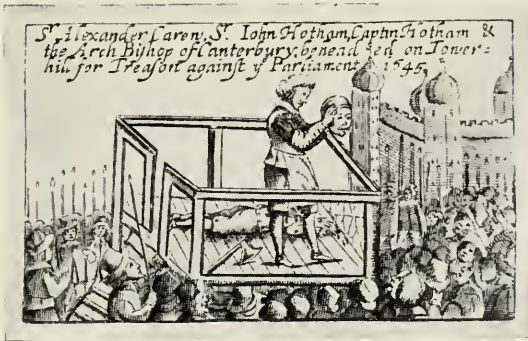 Sr. Alexander Carew, Sr. Iohn Hotham, Captin Hotham &
the Arch Bishop of Canterbury, beheaded on Tower-
hill for Treason against ye Parliament 1645